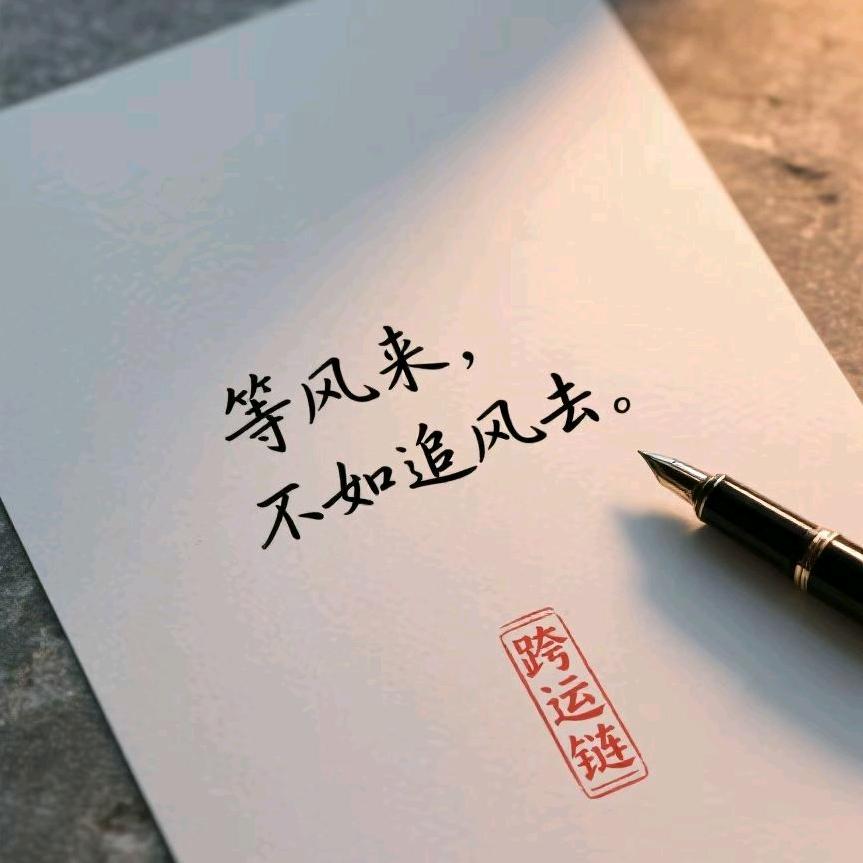 等风来，
不如追风去。
跨运链